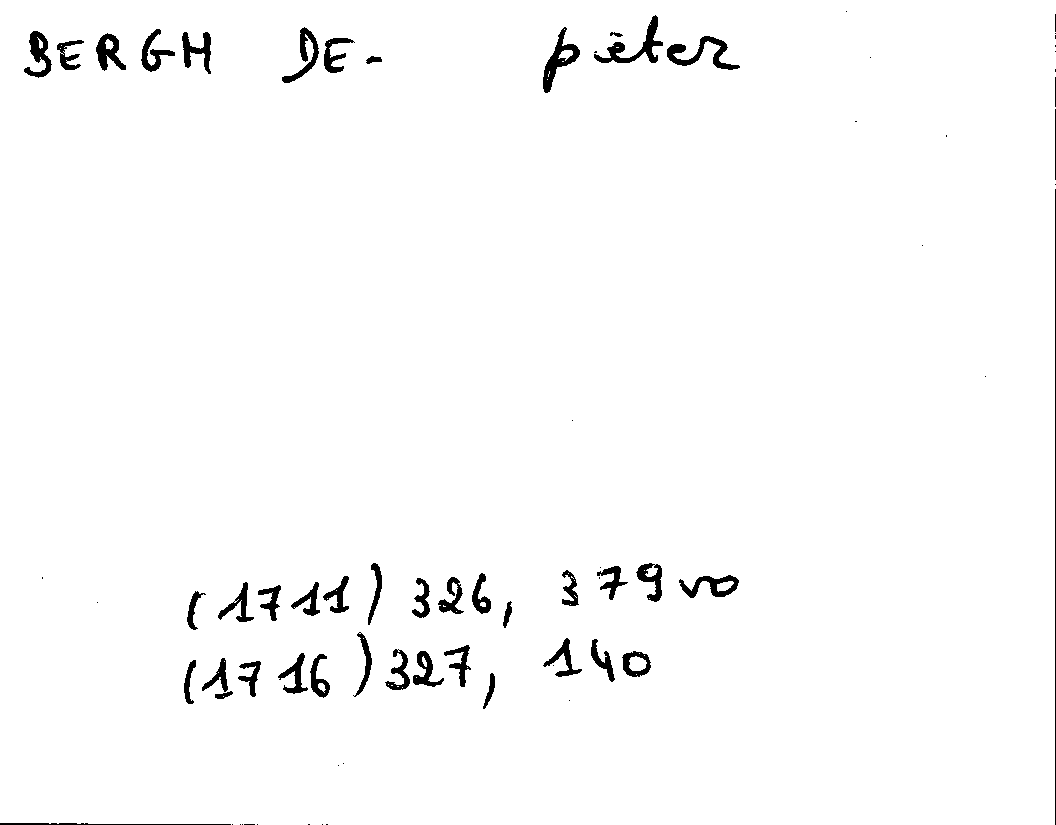 BERGH DE- pieter
(1711) 326, 379 vo
(1716) 327, 140